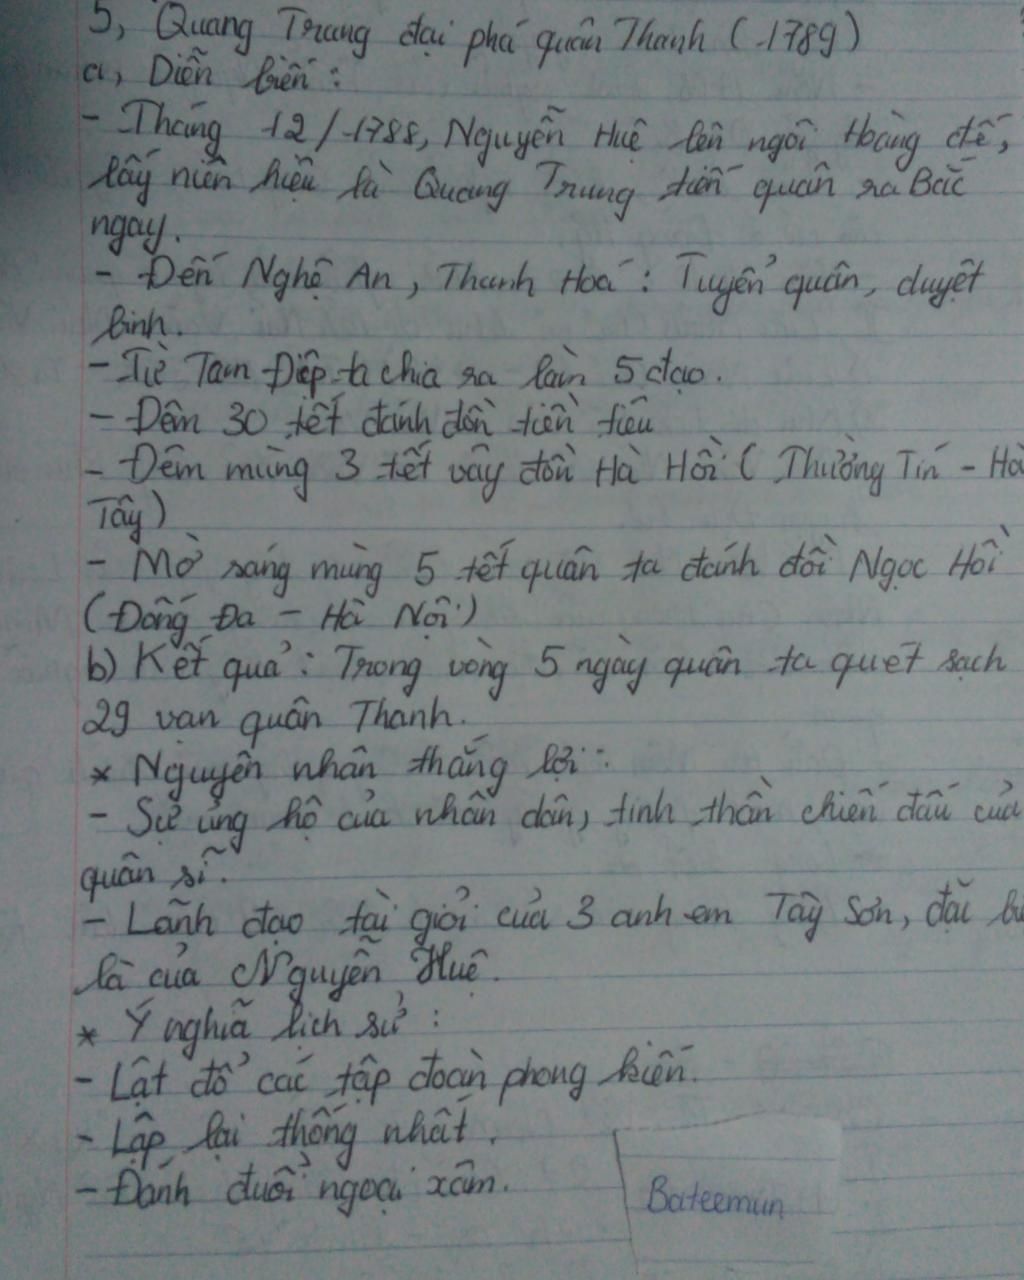 5, Quang Trung đại phá quân Thanh (1789)
a, Diễn biến:
- Tháng 12/1788, Nguyễn Huệ lên ngôi Hoàng đế,
lấy niên hiệu là Quang Trung tiến quân ra Bắc
ngay.
- Đến Nghệ An, Thanh Hoá: Tuyển quân, duyệt
binh.
- Từ Tam Điệp ta chia ra làm 5 đạo.
- Đêm 30 tết đánh đồn tiền tiêu
- Đêm mùng 3 tết vây đồn Hà Hồi (Thường Tín - Hà
Tây)
- Mờ sáng mùng 5 tết quân ta đánh đồi Ngọc Hồi
(Đống Đa - Hà Nội)
b) Kết quả: Trong vòng 5 ngày quân ta quét sạch
29 vạn quân Thanh.
* Nguyên nhân thắng lợi:
- Sự ủng hộ của nhân dân, tinh thần chiến đấu của
quân sĩ.
- Lãnh đạo tài giỏi của 3 anh em Tây Sơn, đặi bi
là của Nguyễn Huệ.
* Ý nghĩa lịch sử:
- Lật đổ các tập đoàn phong kiến.
- Lập lại thống nhất.
- Đánh đuổi ngoại xâm.
Bateemun